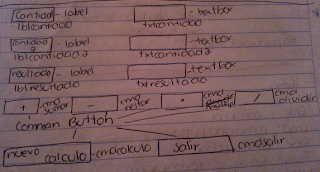 cantidad - label - textbox
lblcantidad txtcantidad
cantidad 2 - label - textbox
lblcantidad2 txtcantidad2
resultado - label - textbox
lblresultado txtresultado
+ cmd sumar - cmd restar * cmd multipl / cmd dividir
Common Button
nuevo calculo - cmdcalculo salir cmdsalir